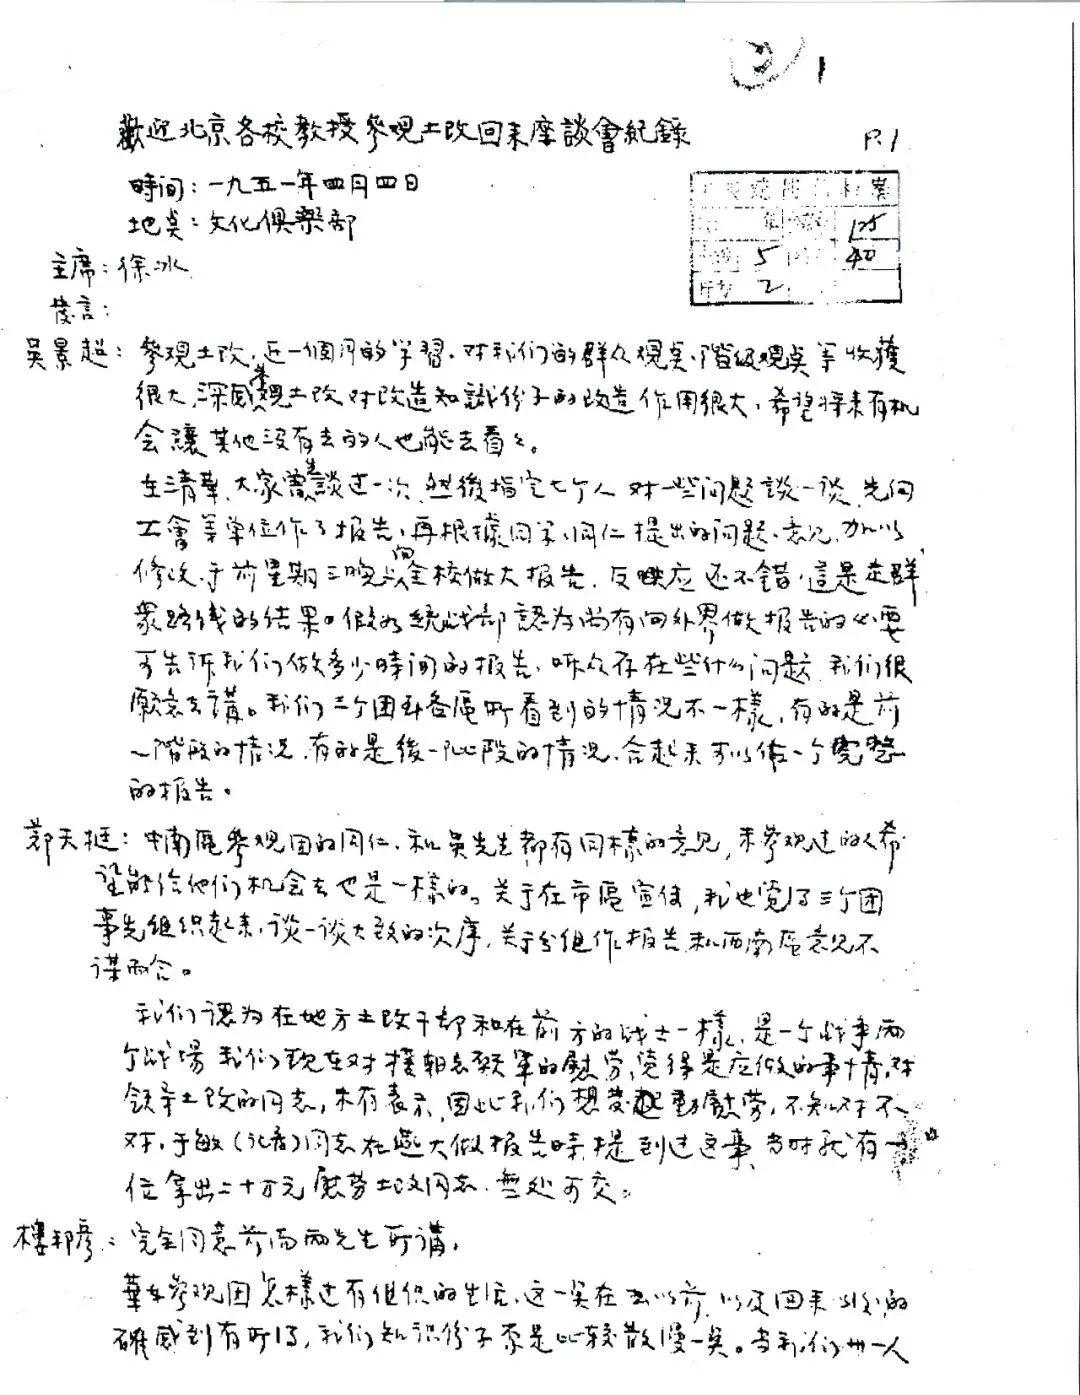 歡迎北京各校教授參观土改回来座談會紀錄
P.1
時间：一九五一年四月四日
地奌：文化俱樂部
125
5
40
2
主席：徐冰
发言：
吴景超：參观土改，近一個月的学習，对我们的群众观奌、階级观奌等收獲
很大，深感參观土改对改造知識份子的改造作用很大，希望将来有机
会讓其他没有去的人也能去看看。
在清華，大家曾先談过一次，然後指定七个人对一些问題談一談，先向
工會等單位作了报告，再根據同学、同仁提出的问题、意见，加以
修改，于前星期三晚向全校做大报告，反映应还不错，這是走群
衆路线的结果。假如统战部認为尚有向外界做报告的必要
可告诉我们做多少時间的报告，听众存在些什么问题，我们很
願意去講。我们三个团在各區所看到的情况不一樣，有的是前
一階段的情况，有的是後一阶段的情况，合起来可以做一个完整
的报告。
郑天挺：中南區參观团的同仁，和吴先生都有同樣的意见，未參观过的人希
望能给他们机会去也是一樣的。关于在市區宣传，我也覚得三个团
事先组织起来，谈一谈大致的次序，关于分组作报告和西南區意见不
谋而合。
我们認为在地方土改干部和在前方的战士一樣，是一个战争两
个战場，我们现在对援朝志願軍的慰劳，覚得是应做的事情，对
领导土改的同志，未有表示，因此我们想发起動慰劳，不知对不
对，于敏（记者）同志在燕大做报告時提到过这事，当时就有一
位拿出二十万元慰劳土改同志，無处可交。
樓邦彦：完全同意前面两先生所講，
華东參观团怎樣过有组织的生活，这一奌在去以前，以及回来以後的
確感到有所得，我们知识份子原是比较散漫一奌。当我们卅一人